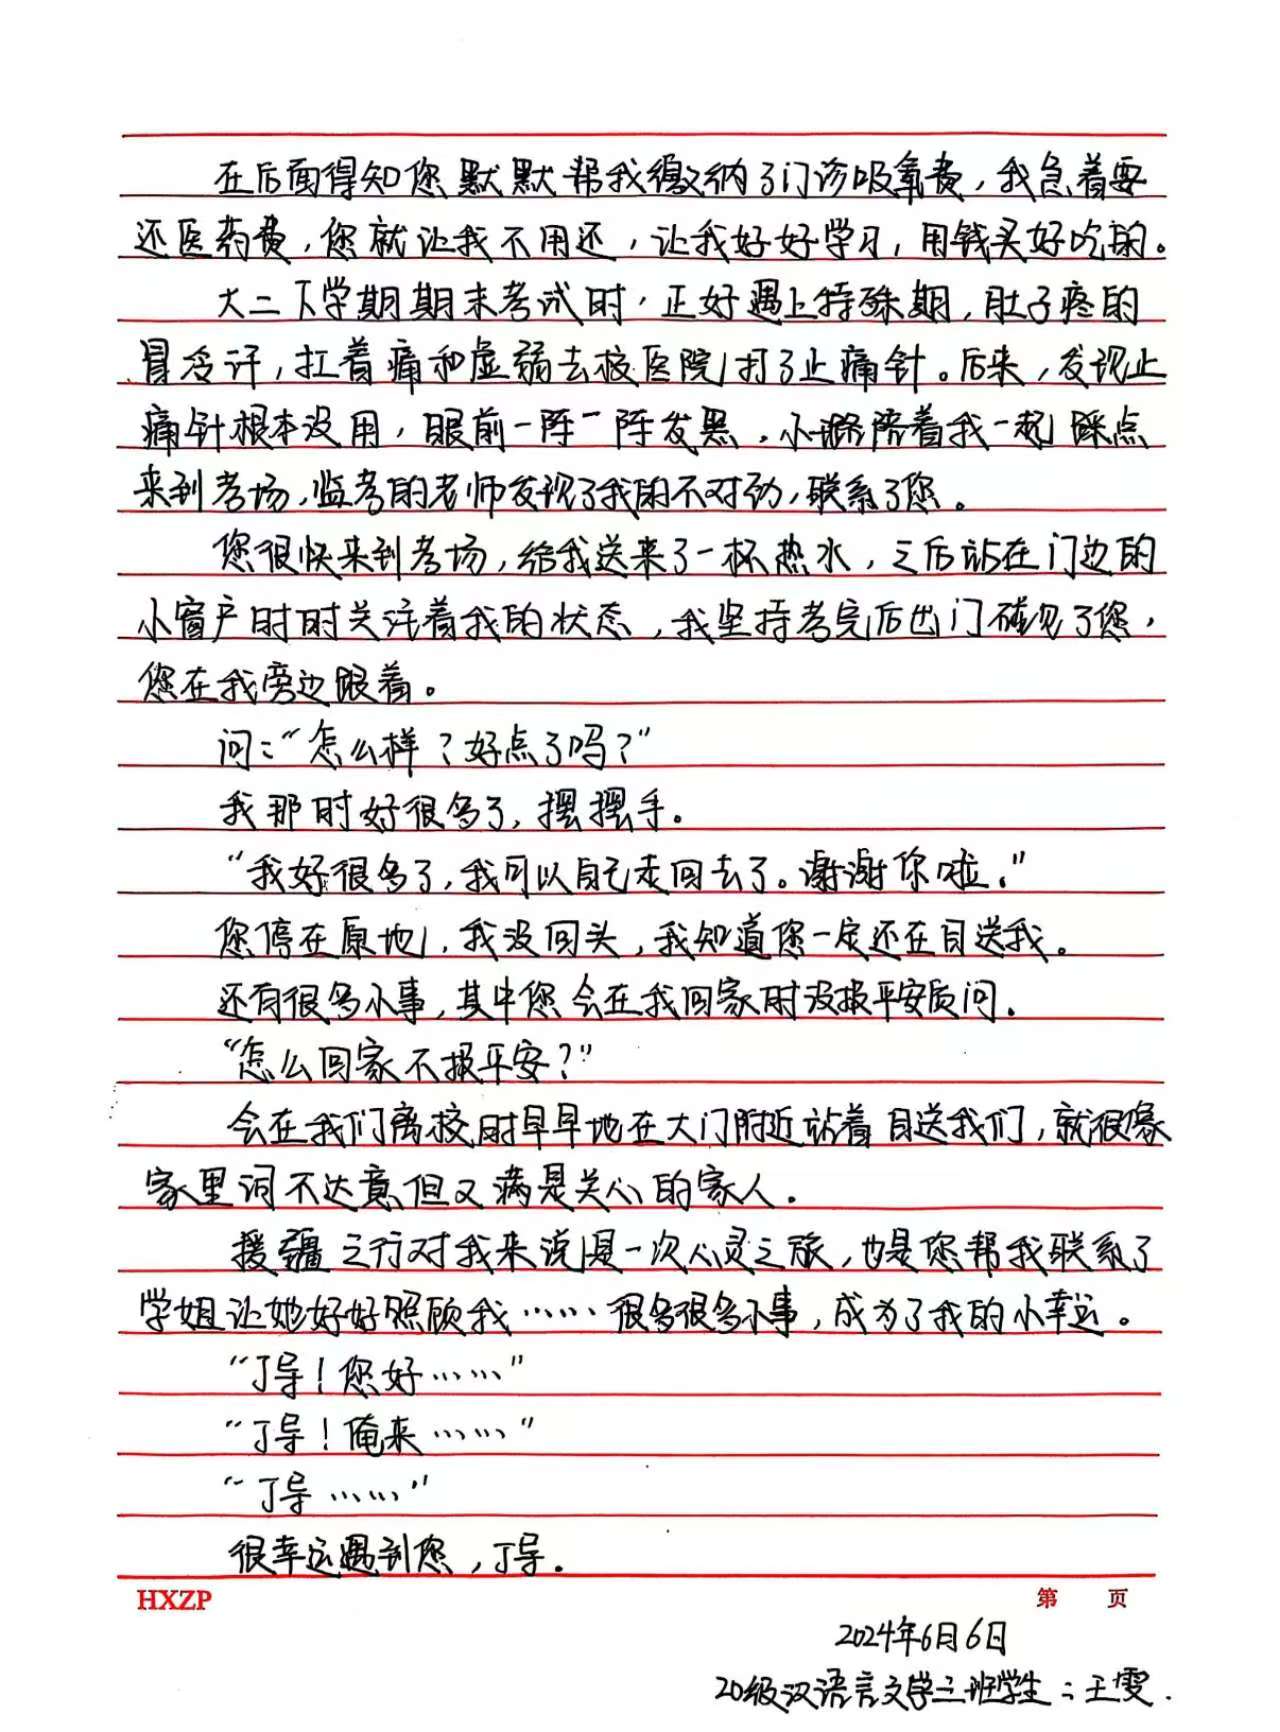 在后面得知您默默帮我缴纳了门诊吸氧费，我急着要
还医药费，您就让我不用还，让我好好学习，用钱买好吃的。
大二下学期期末考试时，正好遇上特殊期，肚子疼的
冒冷汗，扛着痛和虚弱去校医院打了止痛针。后来，发现止
痛针根本没用，眼前一阵一阵发黑，小璐陪着我一起踩点
来到考场，监考的老师发现了我的不对劲，联系了您。
您很快来到考场，给我送来了一杯热水，之后站在门边的
小窗户时时关注着我的状态，我坚持考完后出门碰见了您，
您在我旁边跟着。
问：“怎么样？好点了吗？”
我那时好很多了，摆摆手。
“我好很多了，我可以自己走回去了。谢谢你啦。”
您停在原地，我没回头，我知道您一定还在目送我。
还有很多小事，其中您会在我回家时没报平安质问。
“怎么回家不报平安？”
会在我们离校时早早地在大门附近站着目送我们，就很像
家里词不达意但又满是关心的家人。
援疆之行对我来说是一次心灵之旅，也是您帮我联系了
学姐让她好好照顾我……很多很多小事，成为了我的小幸运。
“丁导！您好……”
“丁导！俺来……”
“丁导……”
很幸运遇到您，丁导。
HXZP 第 页
2024年6月6日
20级汉语言文学三班学生：王雯.